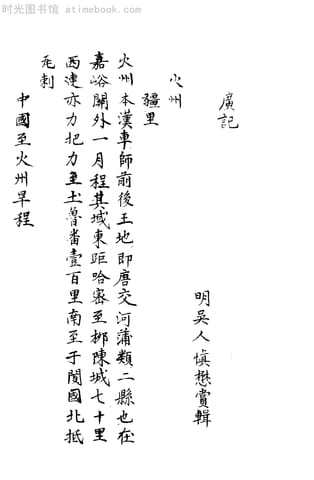 时光图书馆 atimebook.com
廣記
明吳人慎懋賞輯
火州
疆里
火州本漢車師前後王地即唐交河蒲類二縣也在
嘉峪關外一月程其域東距哈密至柳陳城七十里
西連亦力把力至土魯番壹百里南至于闐國北抵
瓦剌
中國至火州旱程